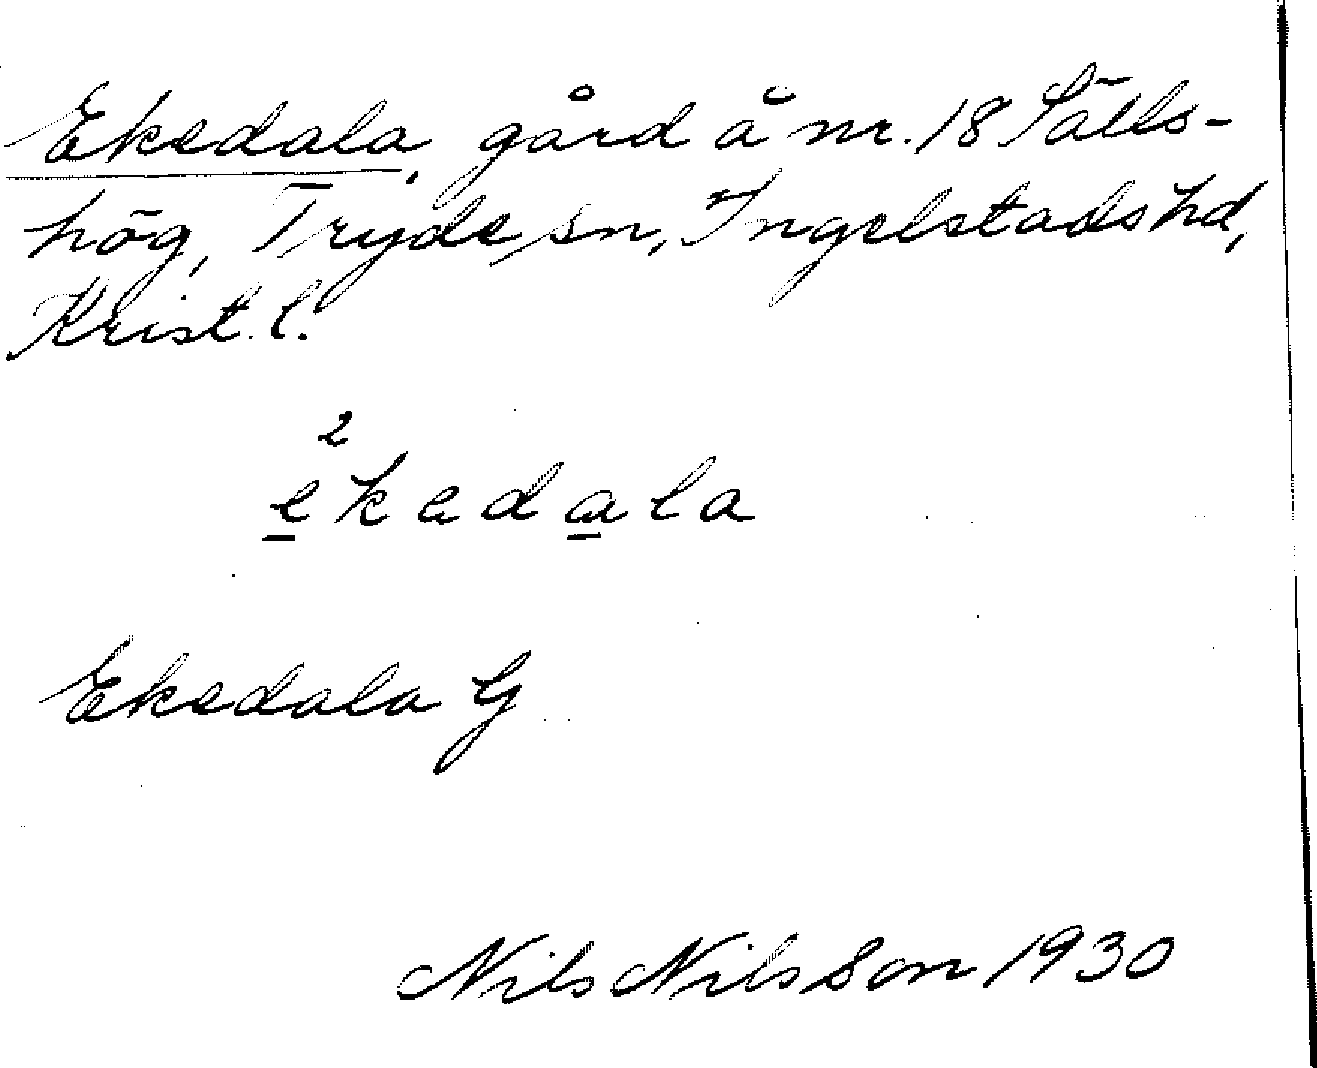 Ekedala, gård å nr. 18 Sälls-
hög, Tryde sn, Ingelstads hd,
Krist. l.
2
ekedala
Ekedala G
Nils Nilsson 1930